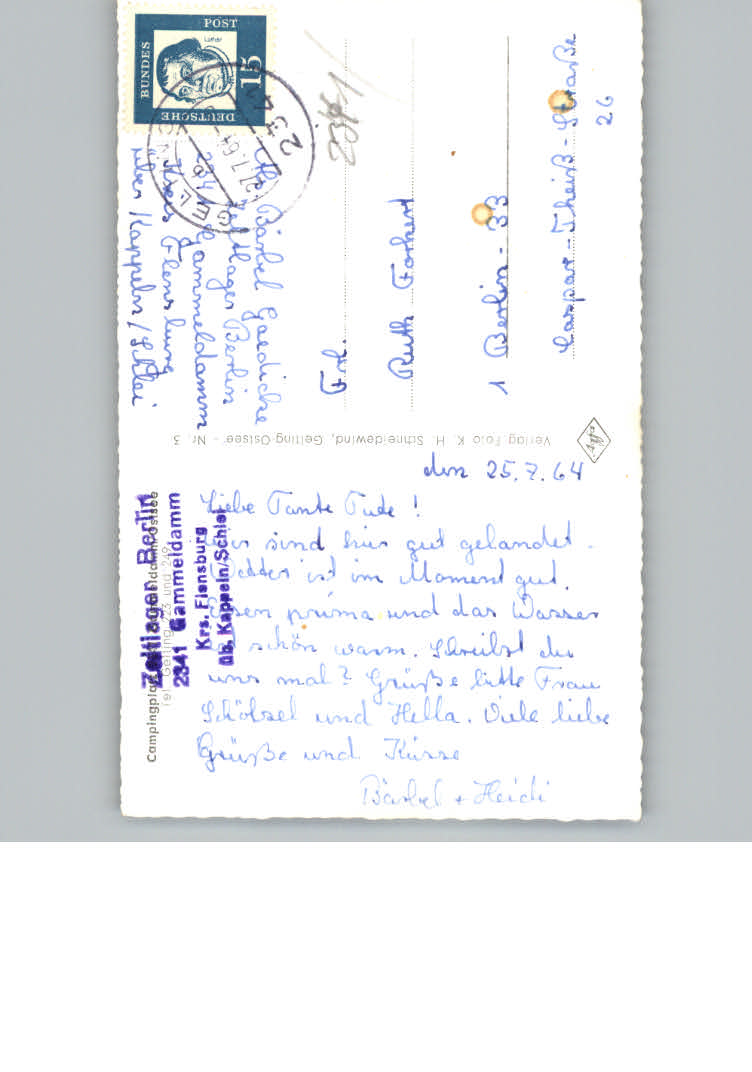 den 25.7.64
Liebe Tante Tude!
Wir sind hier gut gelandet.
Wetter ist im Moment gut.
Essen prima und das Wasser
ist schön warm. Schreibst du
uns mal? Grüße bitte Frau
und Hella. Viele liebe
Grüße und Küsse
Bärbel + Heidi
Campingplatz Gammeldamm/Ostsee
Tel. Gelting 223 und 249
Zeltlager Berlin
2341 Gammeldamm
Krs. Flensburg
üb. Kappeln/Schlei
Verlag Foto K. H. Schneidewind, Gelting-Ostsee - Nr. 3
Agfa
Bärbel Gaedicke
Zeltlager Berlin
2341 Gammeldamm
Kreis Flensburg
über Kappeln/Schlei
DEUTSCHE
BUNDES
POST
15
2341
GELTING
27.7.64
2341
Frl.
Ruth Forkert
1 Berlin - 33
Caspar-Theiß-Straße
26